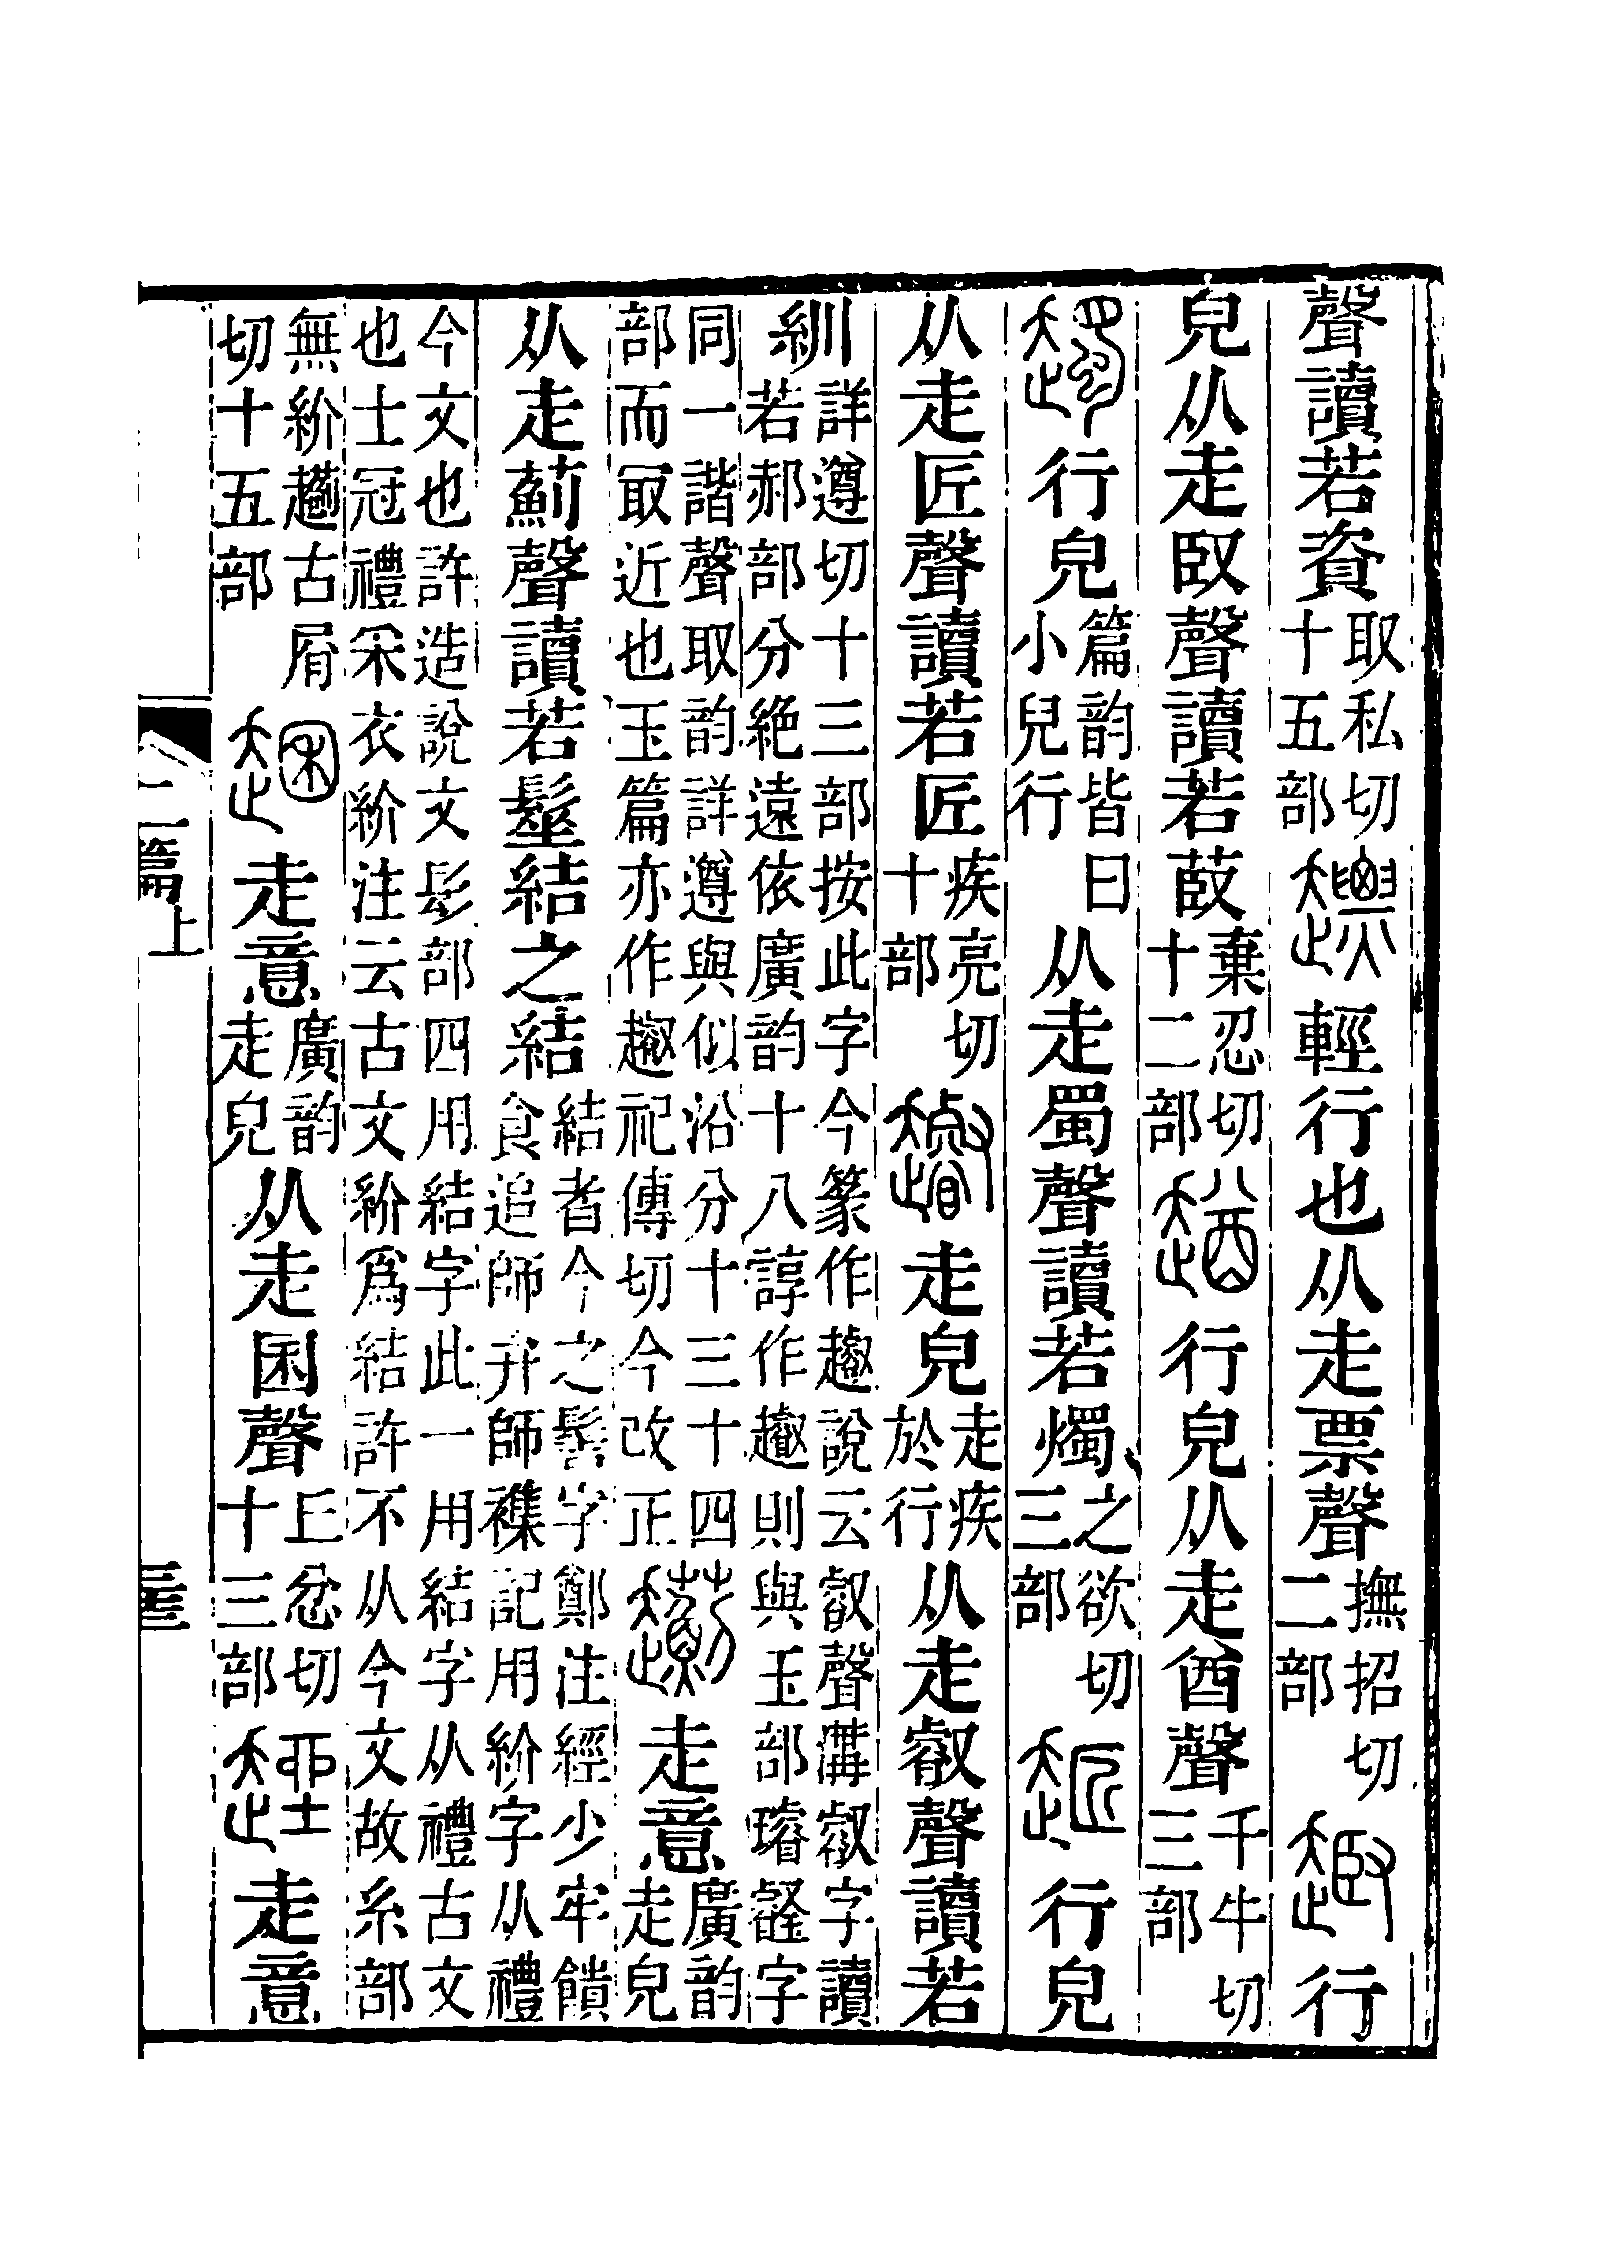 聲讀若資取私切十五部𧽤輕行也从走票聲撫招切二部行
皃从走臤聲讀若菣棄忍切十二部趥行皃从走酋聲千牛切三部
行皃篇韵皆曰小兒行从走蜀聲讀若燭之欲切三部行皃
从走匠聲讀若匠疾亮切十部走皃走疾於行从走叡聲讀若
紃詳遵切十三部按此字今篆作說云叡聲溝叡字讀若郝部分絶遠依廣韵十八諄作則與玉部璿壡字
同一諧聲取韵詳遵與似沿分十三十四部而㝡近也玉篇亦作祀傳切今改正走意廣韵走皃
从走薊聲讀若髽結之結結者今之髻字鄭注經少牢饋食追師弁師襍記用紒字从禮
今文也許造說文髟部四用結字此一用結字从禮古文也士冠禮采衣紒注云古文紒爲結許不从今文故糸部
無紒古屑切十五部走意廣韵走皃从走困聲丘忿切十三部走意
二篇上